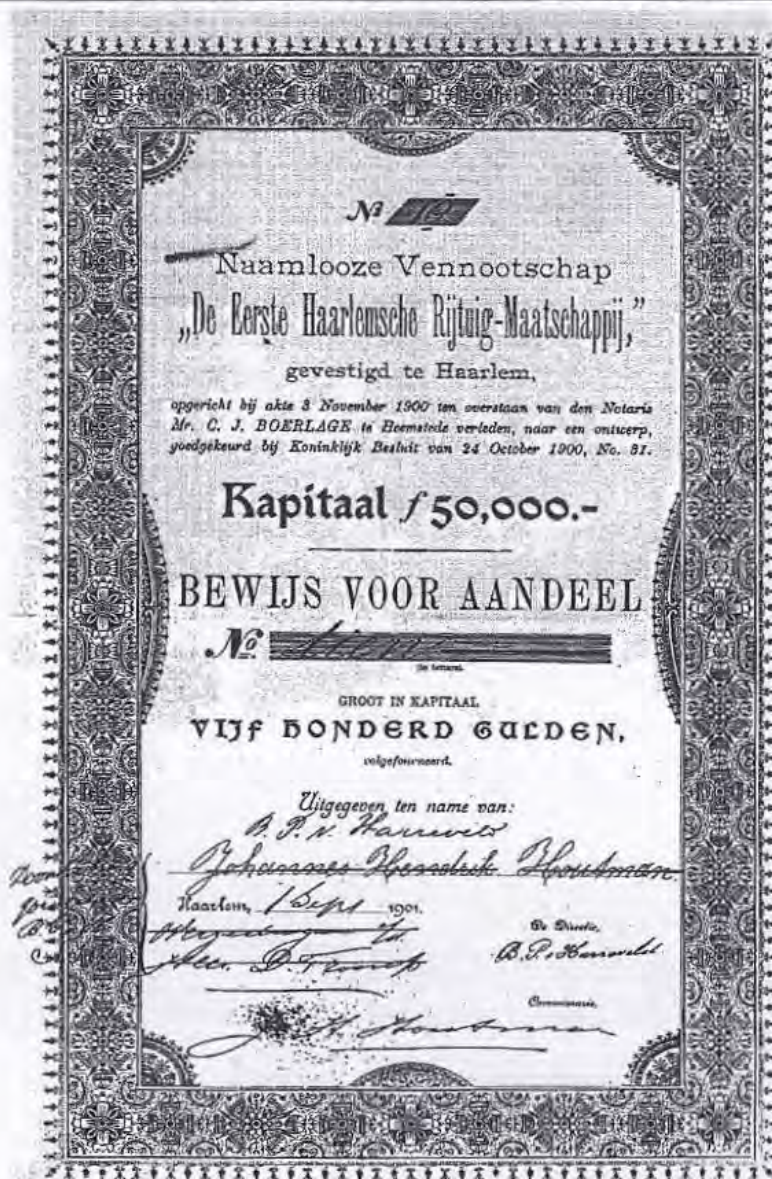 No 10
Naamlooze Vennootschap
„De Eerste Haarlemsche Rijtuig-Maatschappij,”
gevestigd te Haarlem,
opgericht bij akte 3 November 1900 ten overstaan van den Notaris
Mr. C. J. BOERLAGE te Heemstede verleden, naar een ontwerp,
goedgekeurd bij Koninklijk Besluit van 24 October 1900, No. 31.
Kapitaal f 50,000.-
BEWIJS VOOR AANDEEL
No. tien
GROOT IN KAPITAAL
VIJF HONDERD GULDEN,
volgefourneerd.
Uitgegeven ten name van:
B. P. v. Harreveld
Johannes Hendrik Houtman.
Haarlem, 1 Sept 1901.
De Directie,
B. P. v Harreveld
Commissaris,
J. H. Houtman